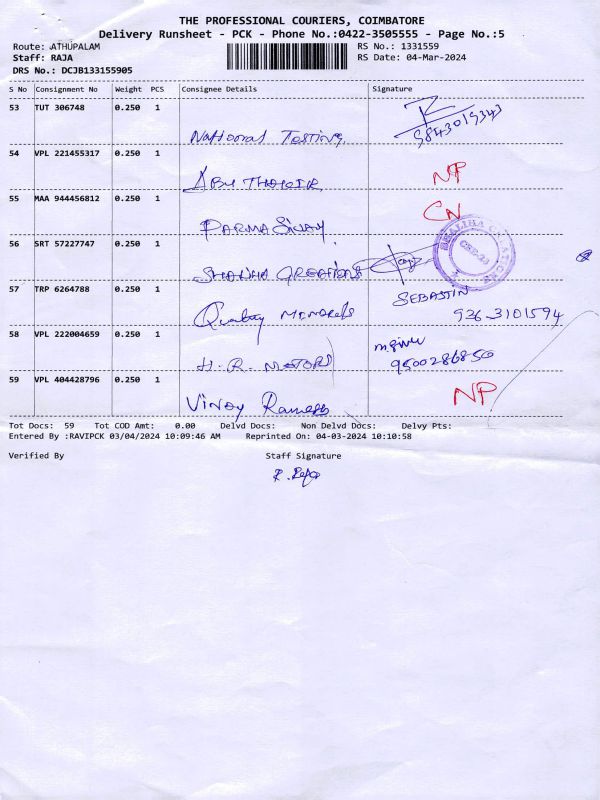 THE PROFESSIONAL COURIERS, COIMBATORE
Delivery Runsheet - PCK - Phone No.:0422-3505555 - Page No.:5
Route: ATHUPALAM RS No.: 1331559
Staff: RAJA RS Date: 04-Mar-2024
DRS No.: DCJB133155905
S No Consignment No Weight PCS Consignee Details Signature
53 TUT 306748 0.250 1
National Testing 9843019343
54 VPL 221455317 0.250 1
ABU THAKIR NP
55 MAA 944456812 0.250 1
PARMA SIVAM CN
56 SRT 57227747 0.250 1
CREATIONS
57 TRP 6264788 0.250 1 SEBASTIN
Quality 936 3101594
58 VPL 222004659 0.250 1
H.R. MOTORS 9500286850
59 VPL 404428796 0.250 1
Vinoy Ramesh NP
Tot Docs: 59 Tot COD Amt: 0.00 Delvd Docs: Non Delvd Docs: Delvy Pts:
Entered By :RAVIPCK 03/04/2024 10:09:46 AM Reprinted On: 04-03-2024 10:10:58
Verified By Staff Signature
R. Raja